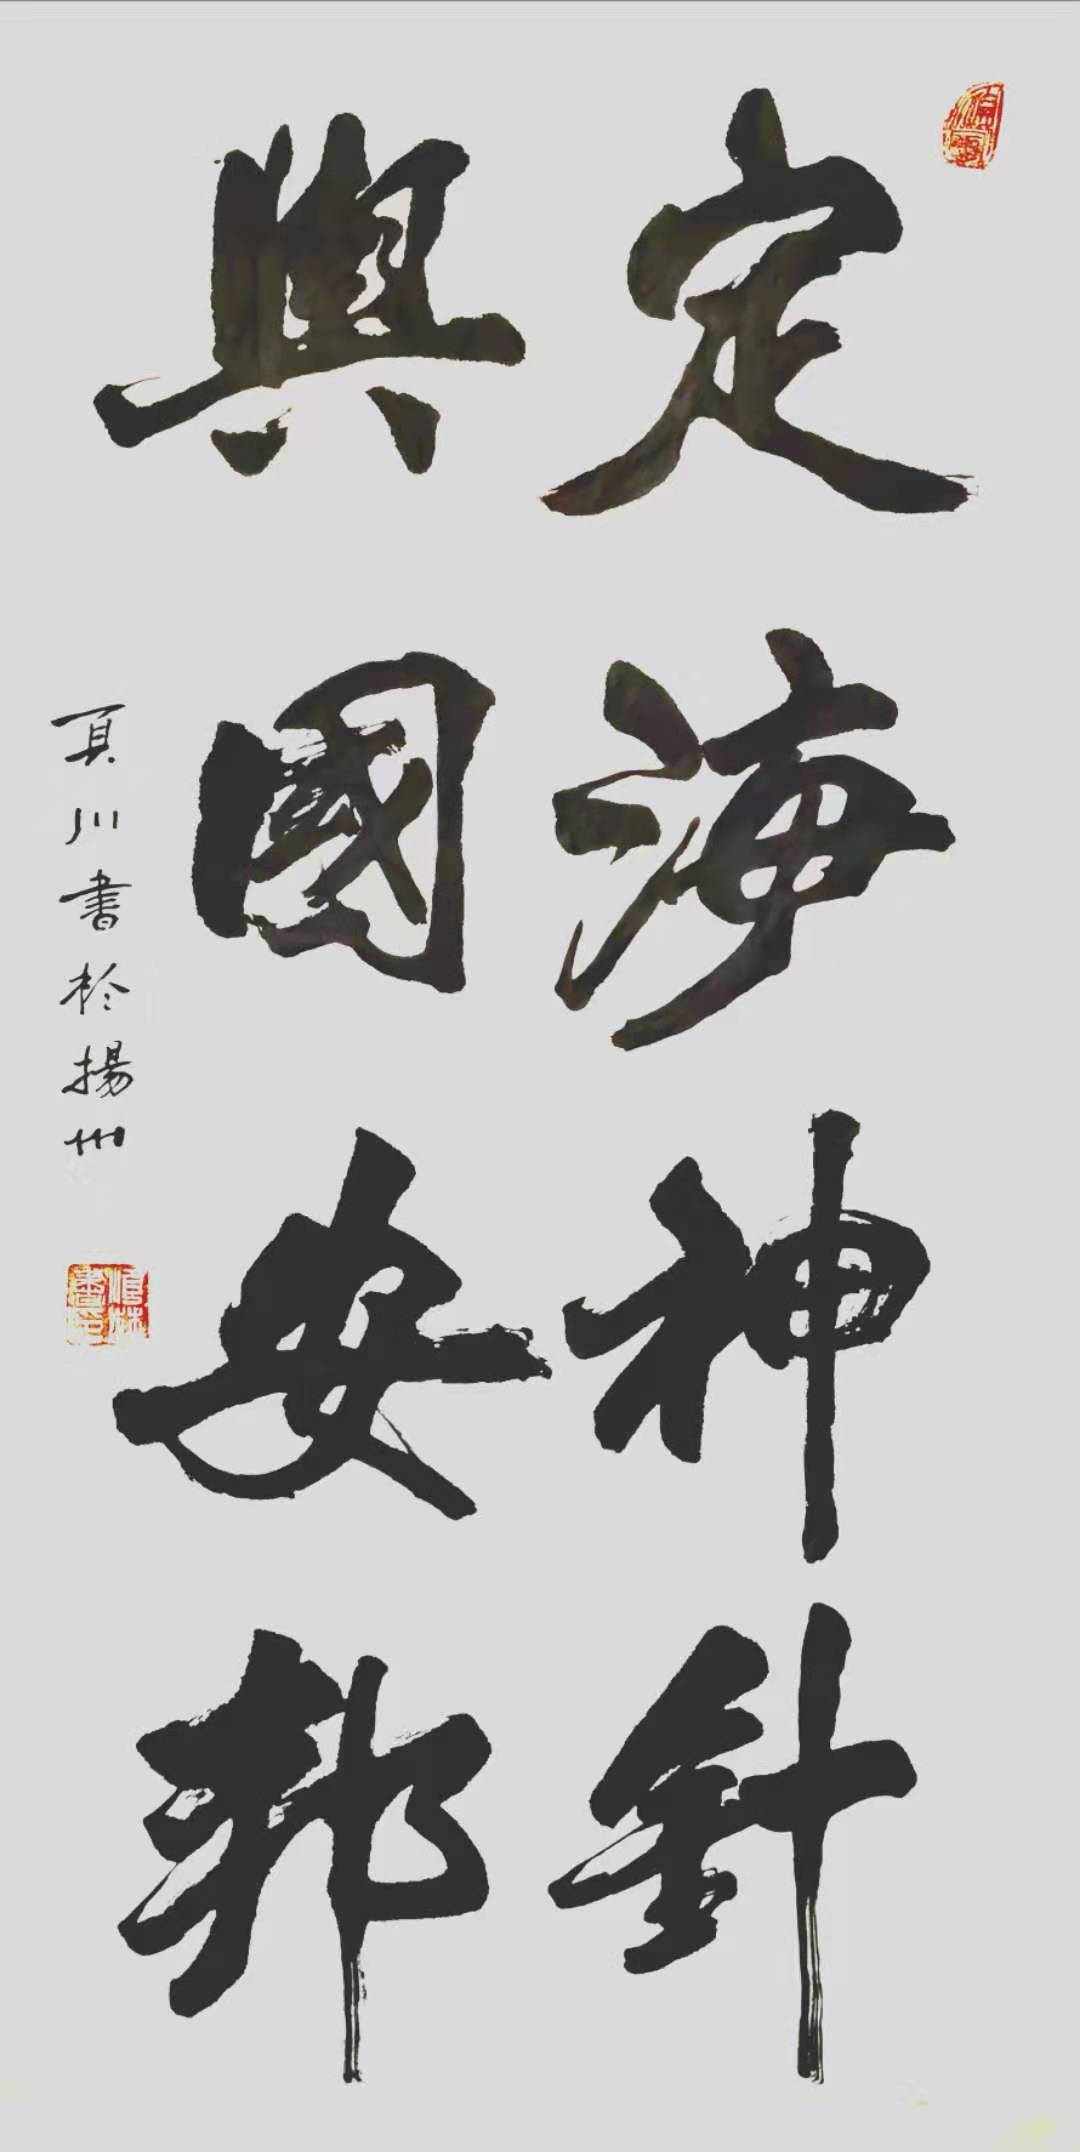 定海神針
興國安邦
頁川書於揚州